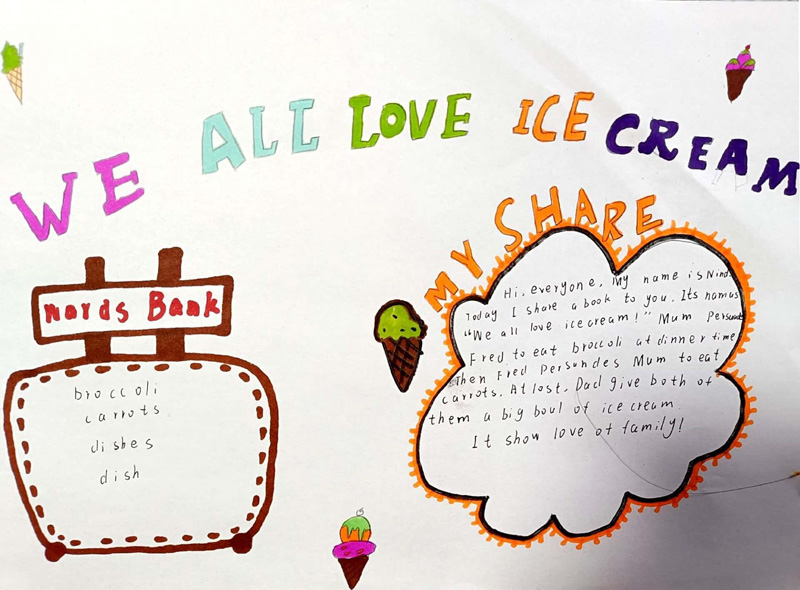 WE ALL LOVE ICE CREAM
MY SHARE
Words Bank
broccoli
carrots
dishes
dish
Hi, everyone, My name is Nind
Today I share a book to you. Its namus
"We all love ice cream!" Mum Persuat
Fred to eat broccoli at dinner time
Then Fred Persundes Mum to eat
carrots. At lost, Dad give both of
them a big boul of ice cream
It show love of family!